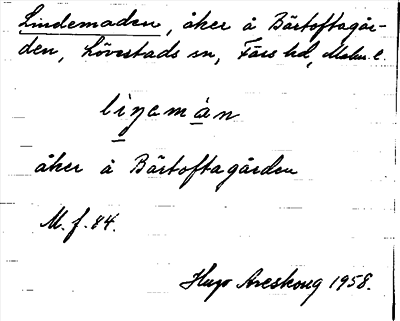 Lindemaden, åker å Bärtoftagår-
den, Lövestads sn, Färs hd, Malm. l.
åker å Bärtoftagården
M. f. 44.
Hugo Areskoug 1958.